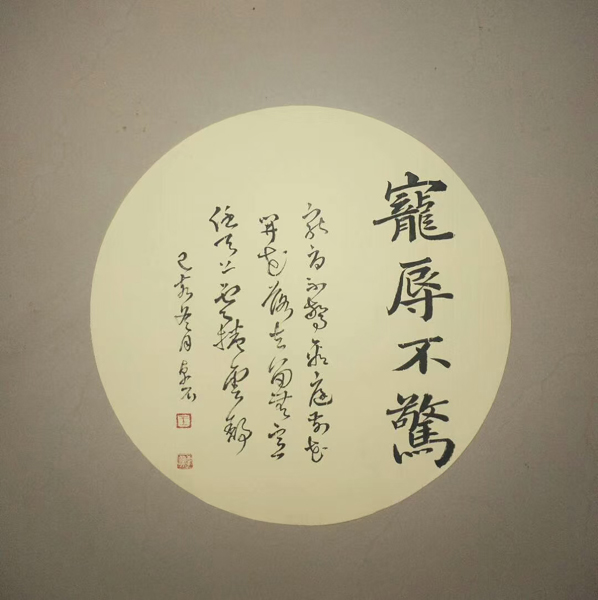 寵辱不驚
寵辱不驚看庭前花
開花落去留無意
任天上雲捲雲舒
己亥冬月